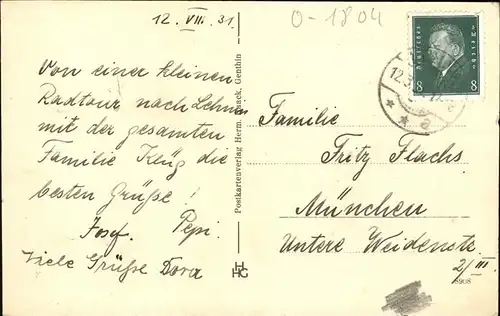 12. VIII. 31.
0-1804
Von einer kleinen
Radtour nach Lehnin
mit der gesamten
Familie Klüg die
besten Grüße!
Josef. Pepi.
Viele Grüße Dora
Postkartenverlag Herm. Haack, Genthin
HHG
Deutsches Reich
8 8
12.
Familie
Fritz Flachs.
München
Untere Weidenstr.
2/III
8908